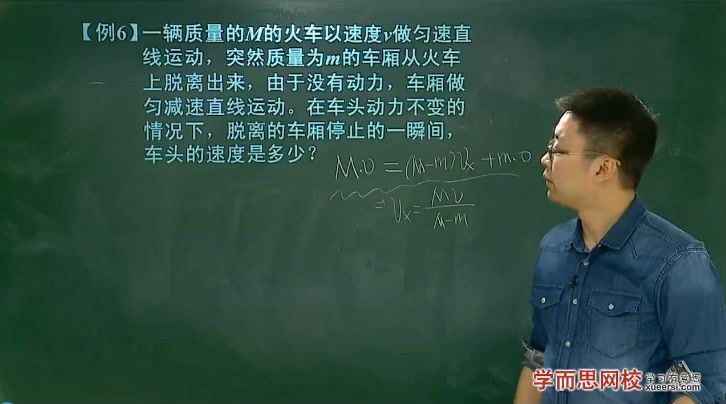 【例6】一辆质量的M的火车以速度v做匀速直
线运动，突然质量为m的车厢从火车
上脱离出来，由于没有动力，车厢做
匀减速直线运动。在车头动力不变的
情况下，脱离的车厢停止的一瞬间，
车头的速度是多少？
M·υ = (M-m)υₓ + m·0
⇒ υₓ = Mυ/(M-m)
学而思网校
学习有意思
xueersi.com